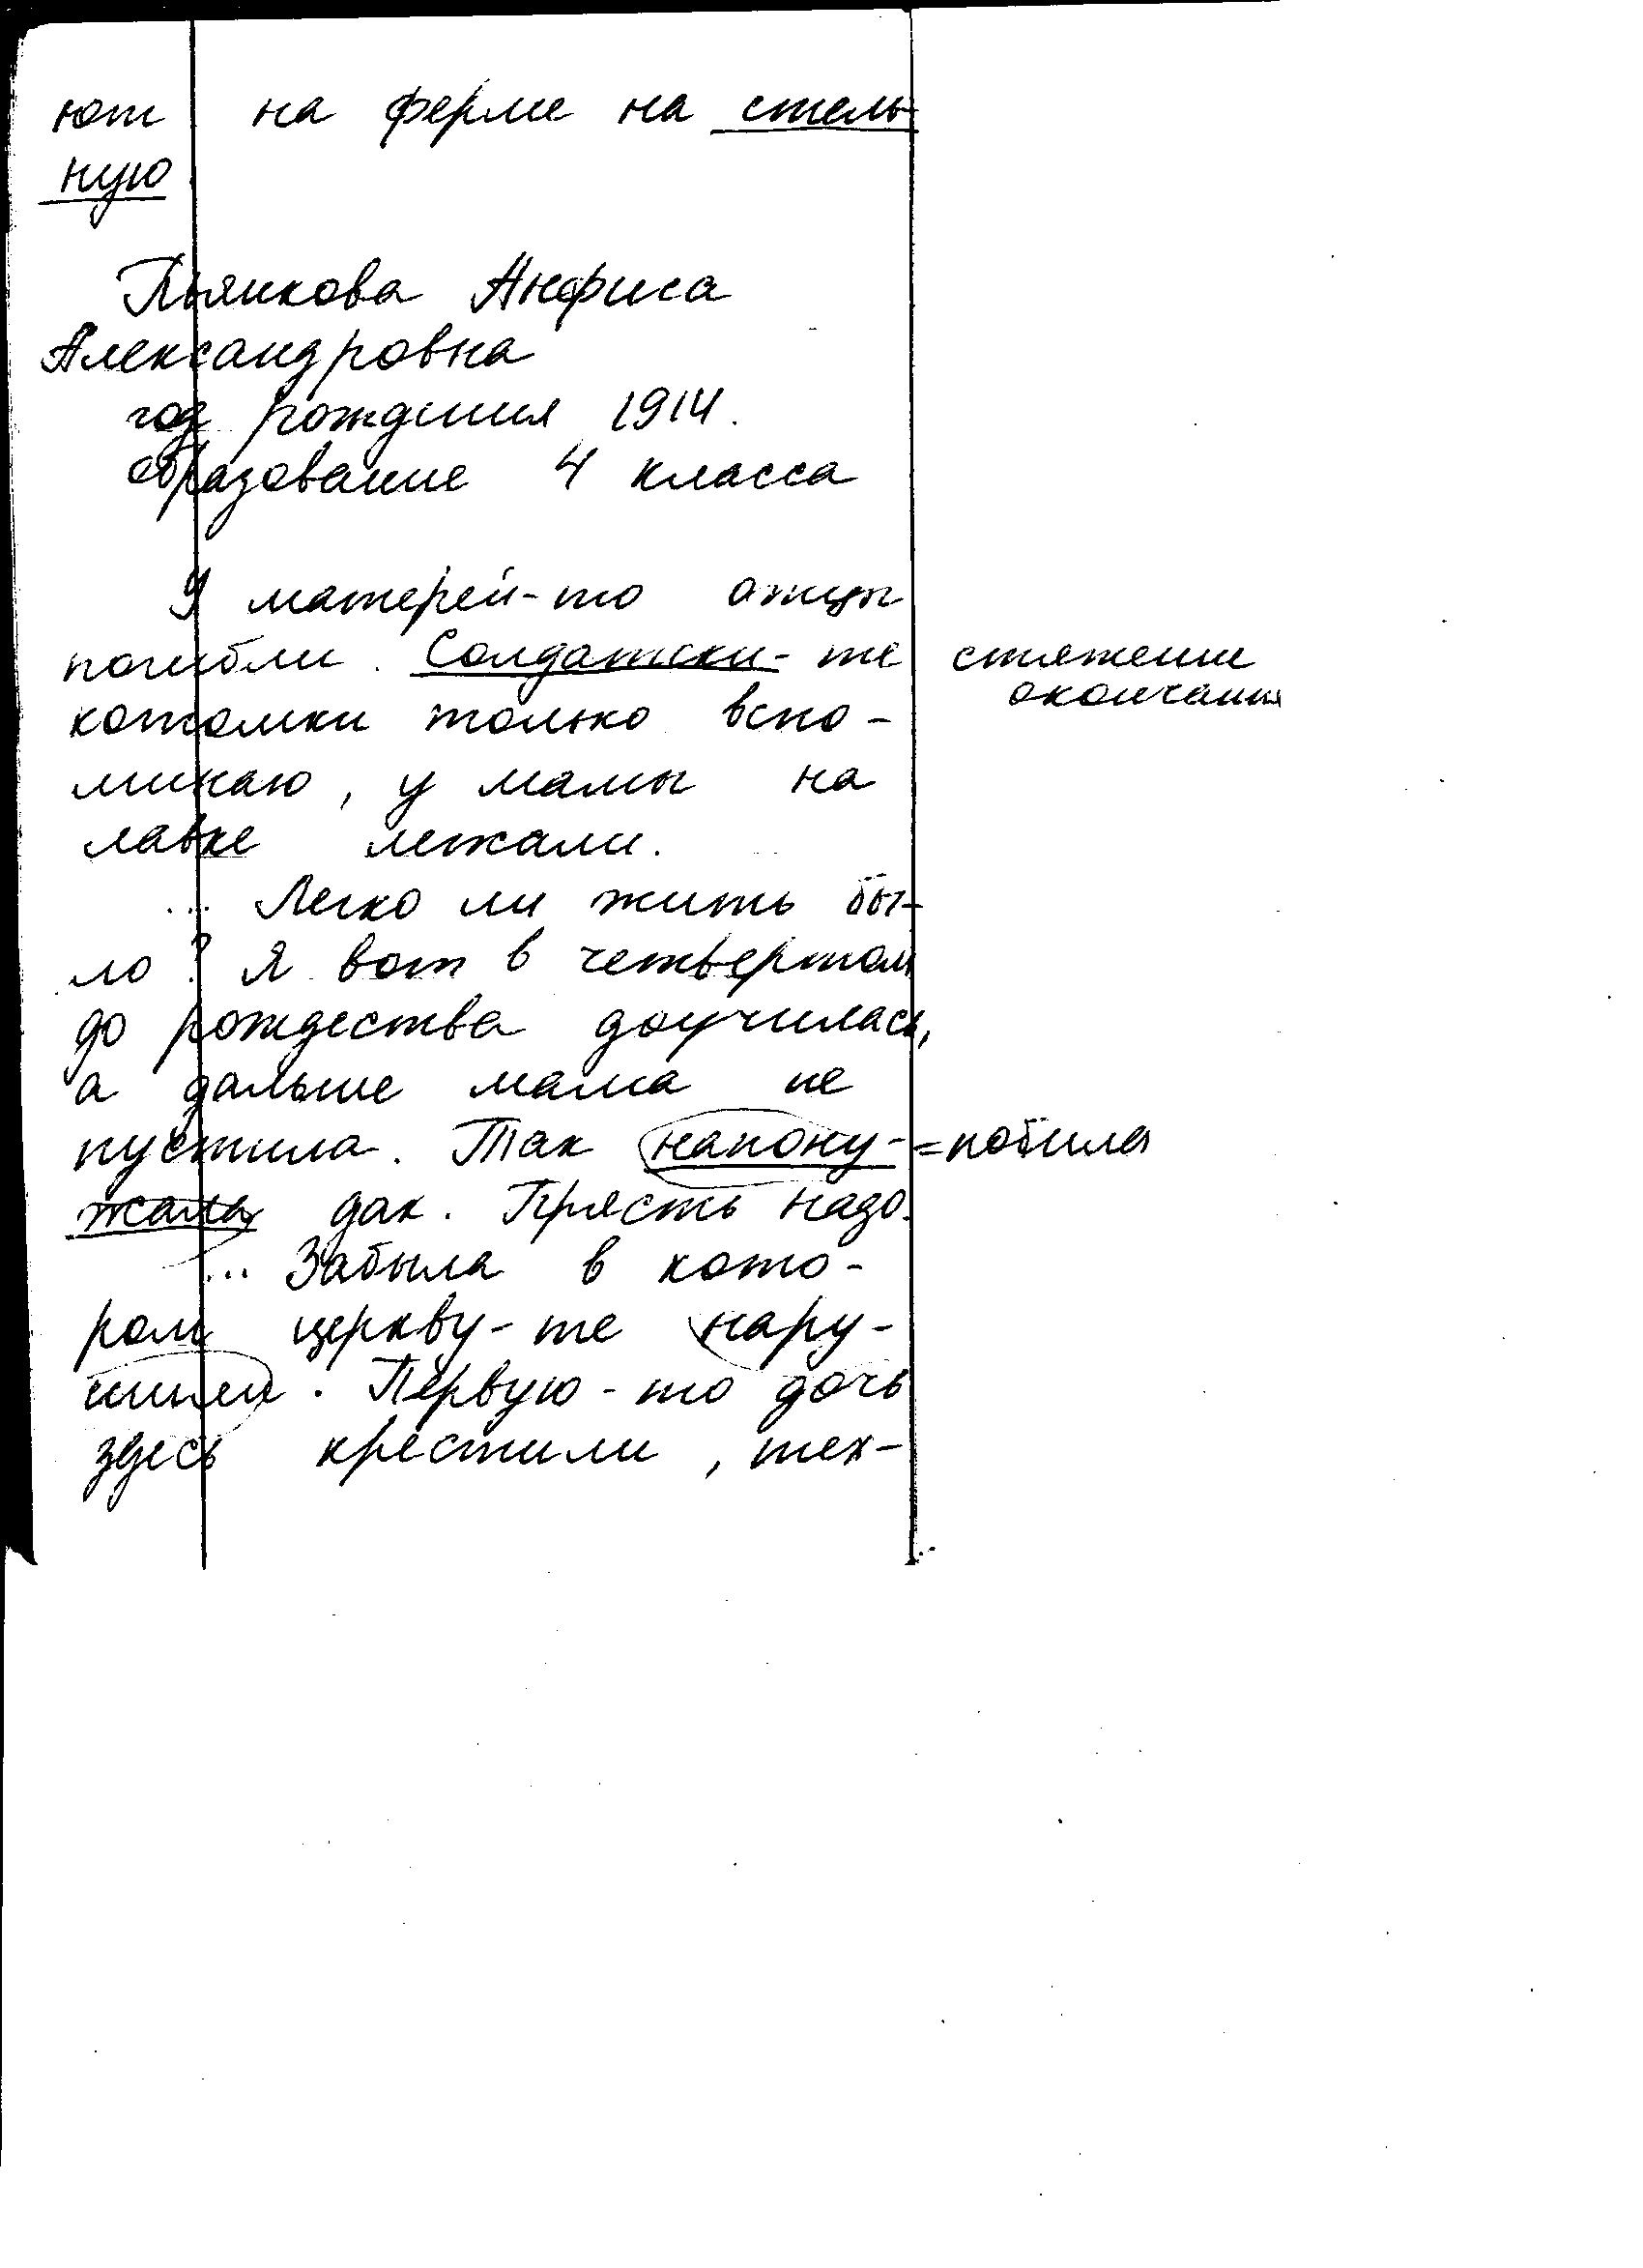 ют на ферме на стель
ную
Пьянкова Анфиса
Александровна
год рождения 1914.
образование 4 класса
У матерей-то отцы
погибли. Солдатски-те стяжение
окончания
котомки только вспо-
минаю, у мамы на
лавке лежали.
... Легко ли жить бы-
ло? Я вот в четвертом
до рождества доучилась,
а дальше мама не
пустила. Так напону- = побила
жала дак. Прясть надо.
... Забыла в кото-
ром церкву-те нару-
шили. Первую-то дочь
здесь крестили, тех-